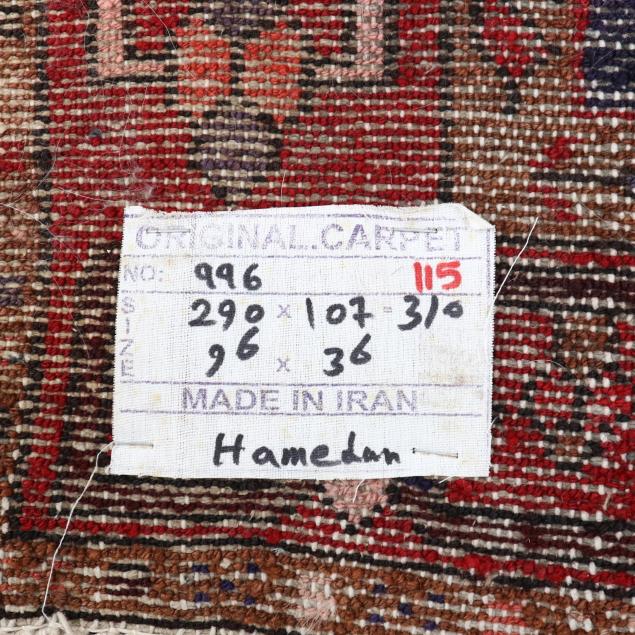 ORIGINAL.CARPET
NO: 996 115
SIZE 290 x 107 = 310
9⁶ x 3⁶
MADE IN IRAN
Hamedan